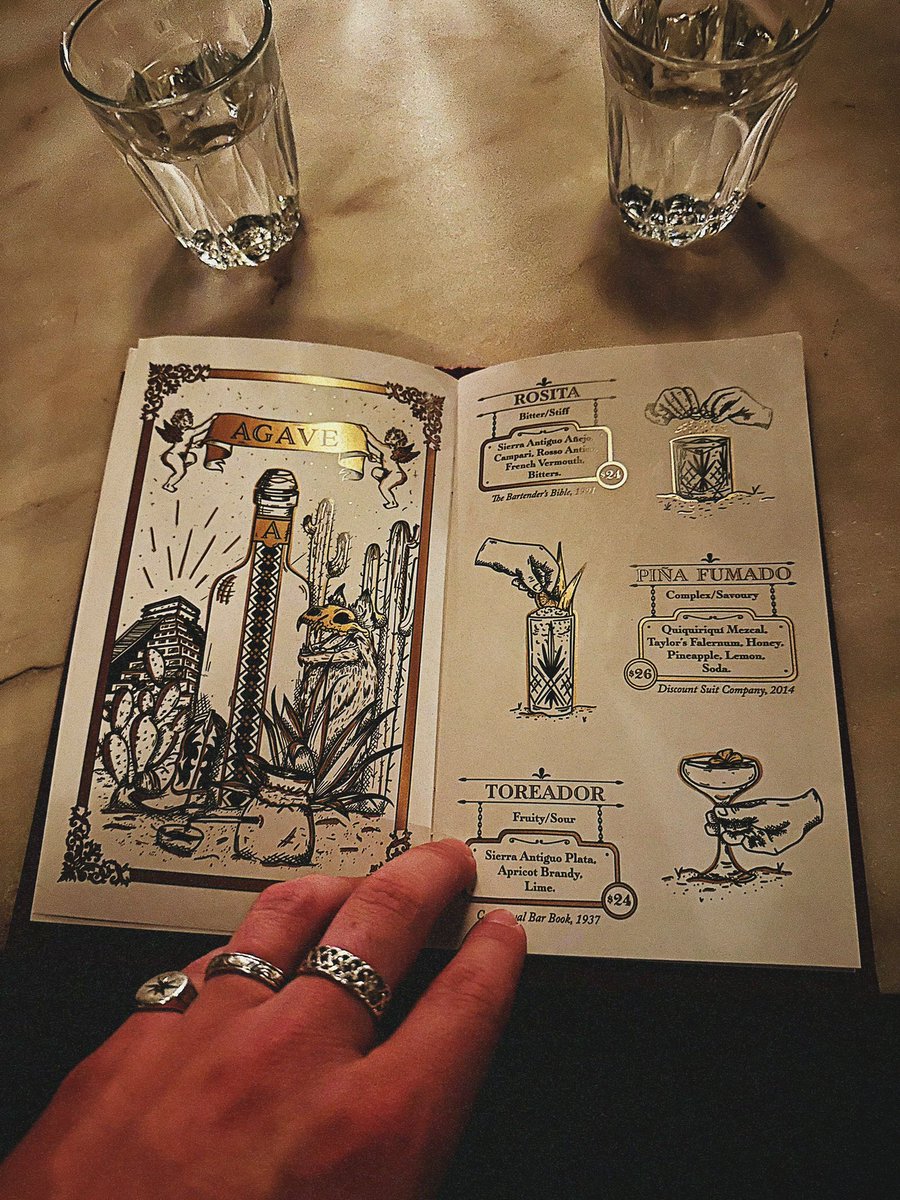 AGAVE
A
ROSITA
Bitter/Stiff
Sierra Antiguo Añejo,
Campari, Rosso Antico,
French Vermouth,
Bitters.
$24
The Bartender's Bible, 1991
PIÑA FUMADO
Complex/Savoury
Quiquiriquí Mezcal,
Taylor's Falernum, Honey,
Pineapple, Lemon,
Soda.
$26
Discount Suit Company, 2014
TOREADOR
Fruity/Sour
Sierra Antiguo Plata,
Apricot Brandy,
Lime.
$24
al Bar Book, 1937